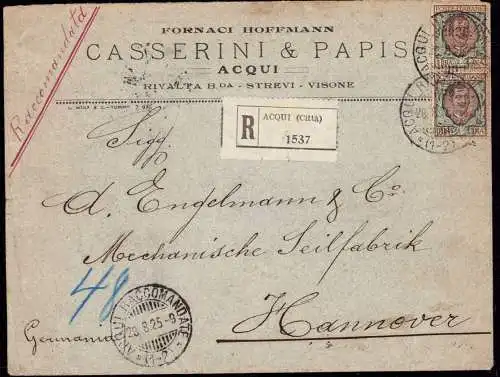 Raccomandata
FORNACI HOFFMANN
CASSERINI & PAPIS
ACQUI
RIVALTA B.DA - STREVI - VISONE
POSTE ITALIANE
R
ACQUI (Città)
1537
Sigg.
A. Engelmann & Co.
Mechanische Seilfabrik
Hannover
Germania
48
ACQUI RACCOMANDATE
28.8.25-9
(1-2)
ACQUI
(1-2)